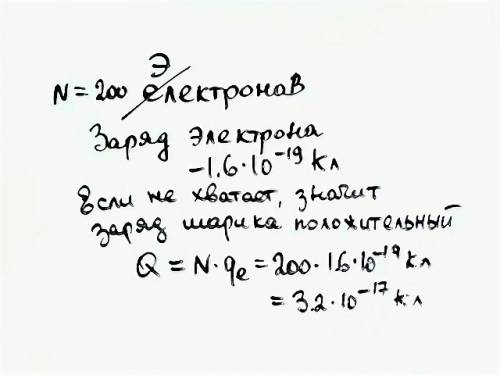 N = 200 Электронав
Заряд Электрона
-1.6·10⁻¹⁹ Кл
Если не хватает, значит
заряд шарика положительный
Q = N·qₑ = 200·1.6·10⁻¹⁹ Кл
= 3.2·10⁻¹⁷ Кл